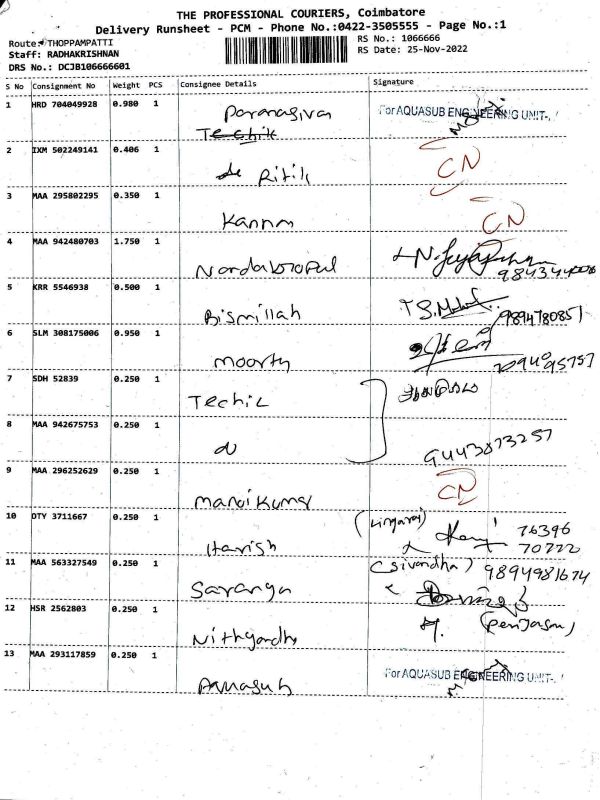 THE PROFESSIONAL COURIERS, Coimbatore
Delivery Runsheet - PCM - Phone No.:0422-3505555 - Page No.:1
Route: THOPPAMPATTI RS No.: 1066666
Staff: RADHAKRISHNAN RS Date: 25-Nov-2022
DRS No.: DCJB106666601
S No Consignment No Weight PCS Consignee Details Signature
1 HRD 704049928 0.980 1 For AQUASUB ENGINEERING UNIT-
2 IXM 502249141 0.406 1 Ritik CN
3 MAA 295802295 0.350 1 Kannan CN
4 MAA 942480703 1.750 1
5 KRR 5546938 0.500 1 Bismillah 9894780851
6 SLM 308175006 0.950 1 moorthy
7 SDH 52839 0.250 1 Techic
8 MAA 942675753 0.250 1 9443873257
9 MAA 296252629 0.250 1 manoj kumar CN
10 DTY 3711667 0.250 1 Harish 76396
70722
11 MAA 563327549 0.250 1 Saranga 9894981674
12 HSR 2562803 0.250 1
13 MAA 293117859 0.250 1 For AQUASUB ENGINEERING UNIT-